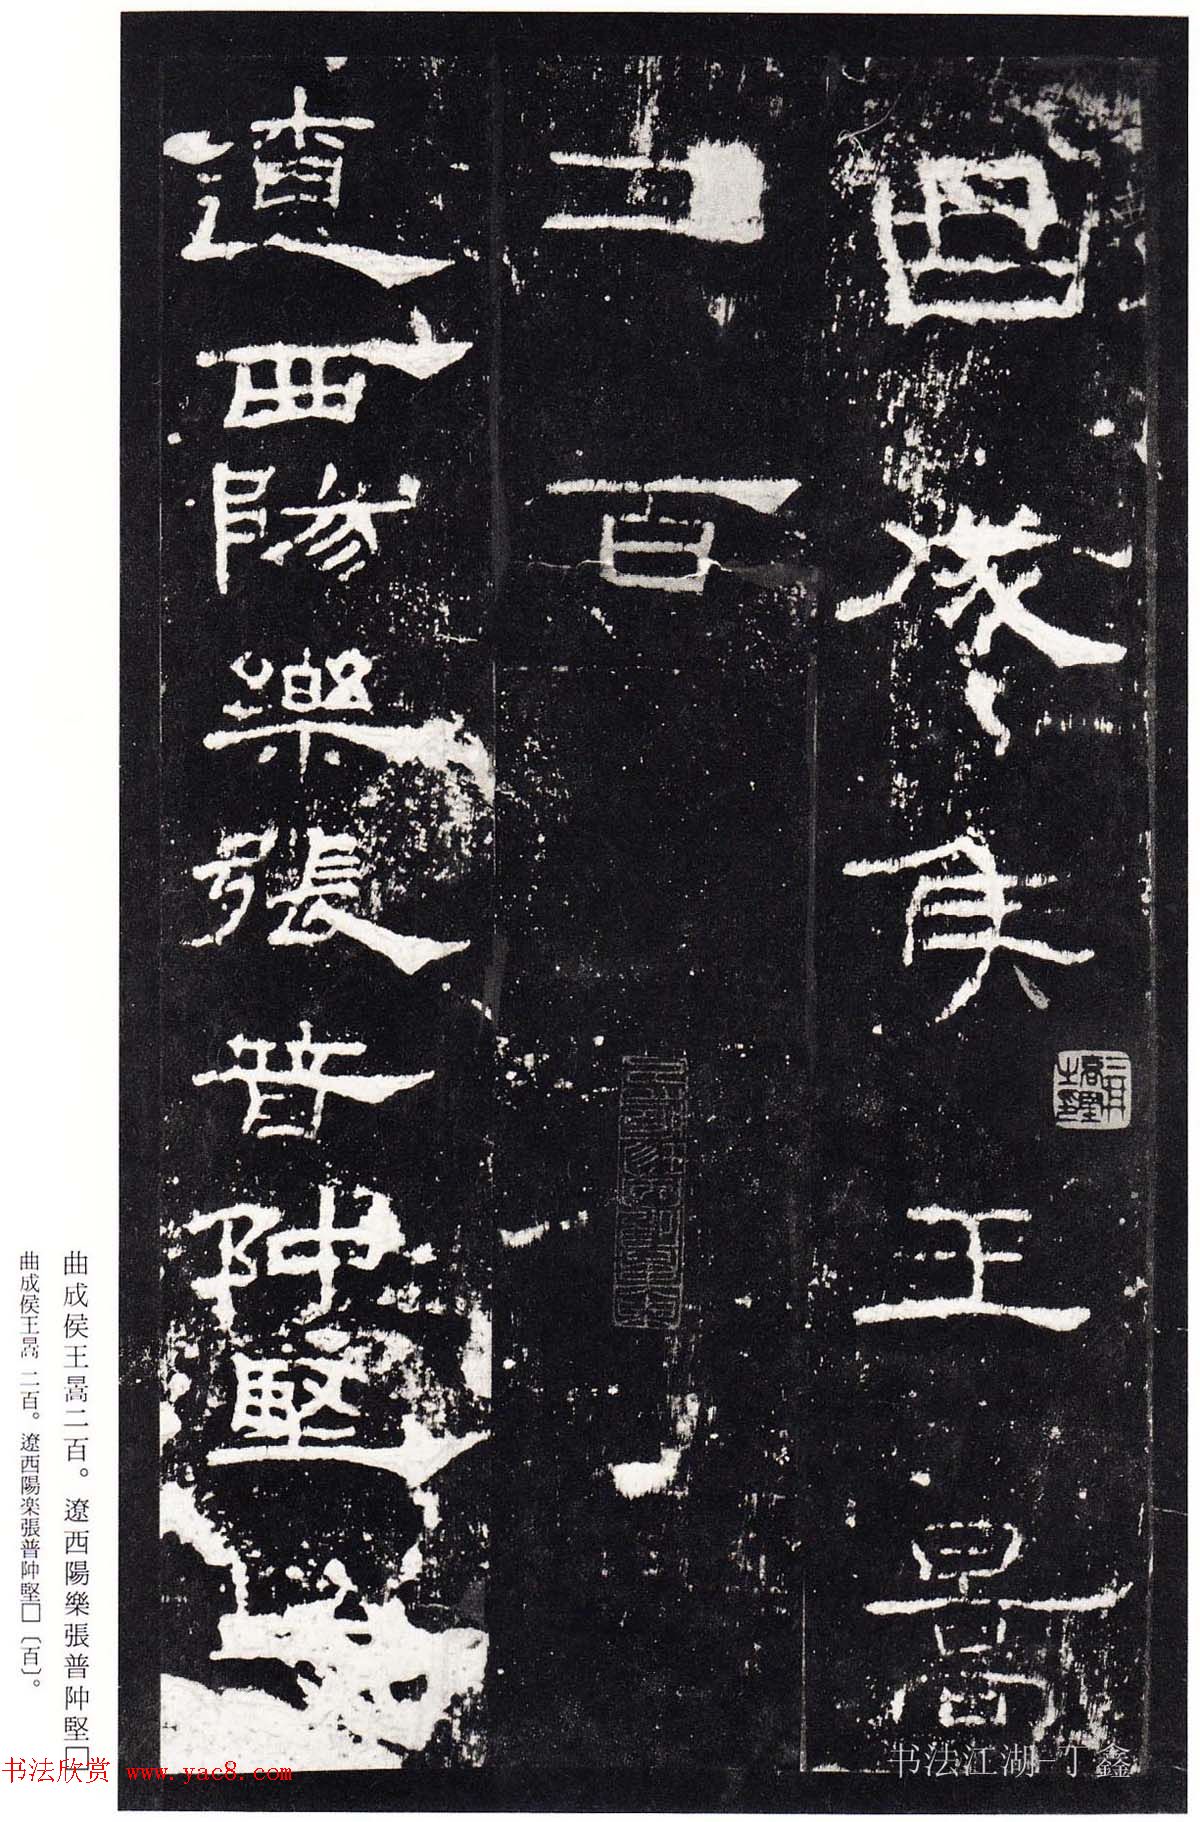 曲成侯王暠
二百
遼西陽樂張普𨸲堅
曲成侯王暠二百。遼西陽樂張普𨸲堅□
曲成侯王暠 二百。遼西陽楽張普𨸲堅□〔百〕。
书法欣赏 www.yac8.com
书法江湖-丁鑫